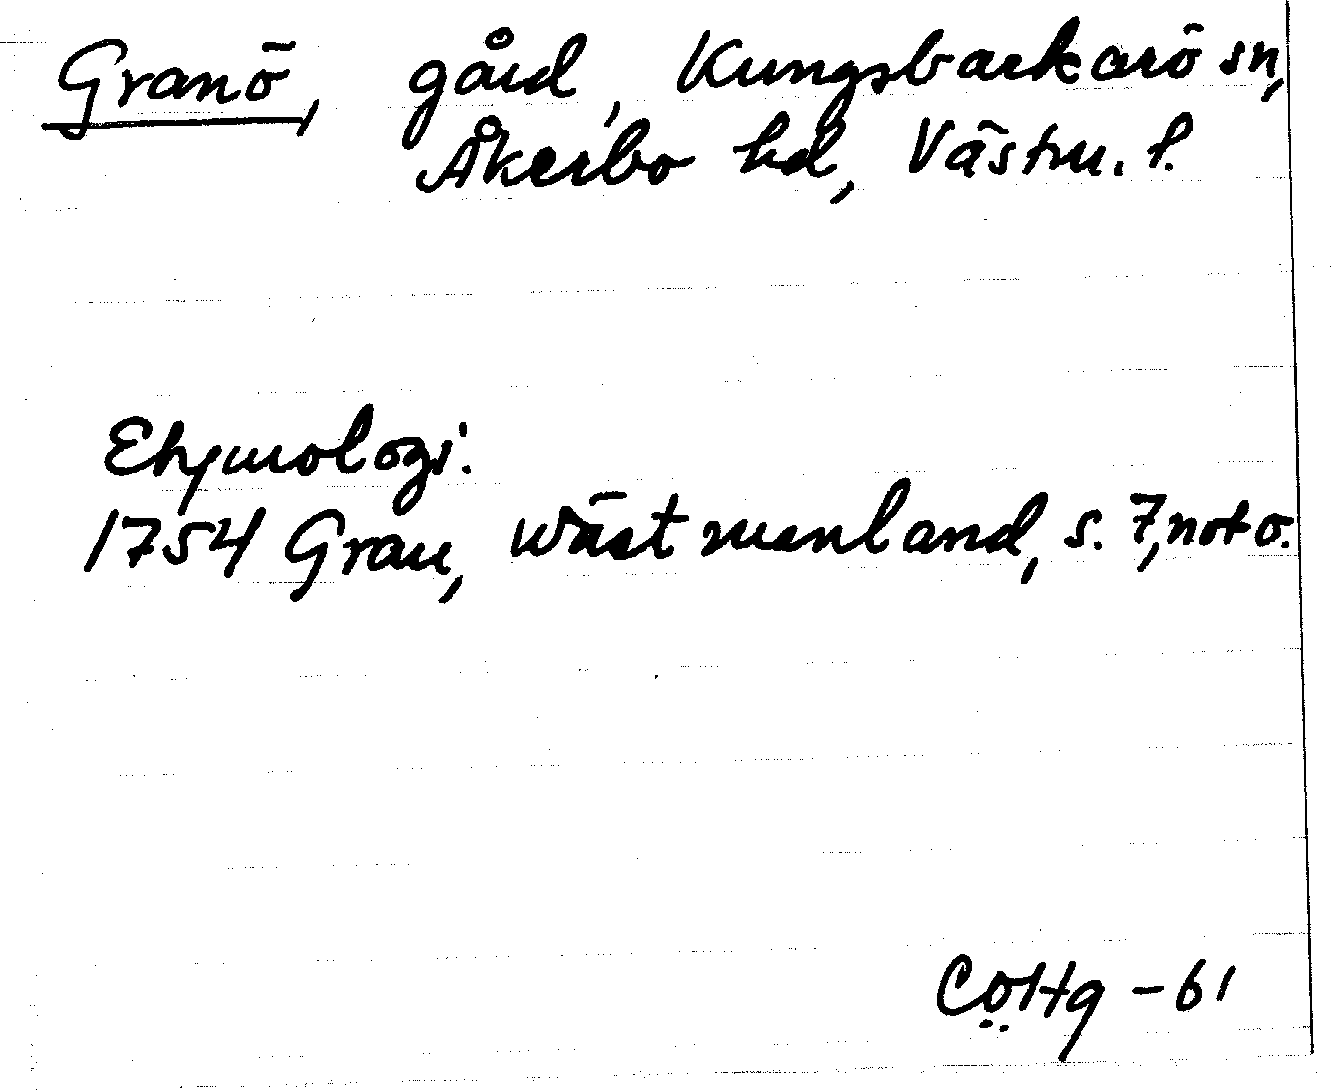 Granö, gård, Kungsbarkarö sn,
Åkerbo hd, Västm. l.
Etymologi:
1754 Grau, Wästmanland, s. 7, not o.
CÖHg -61